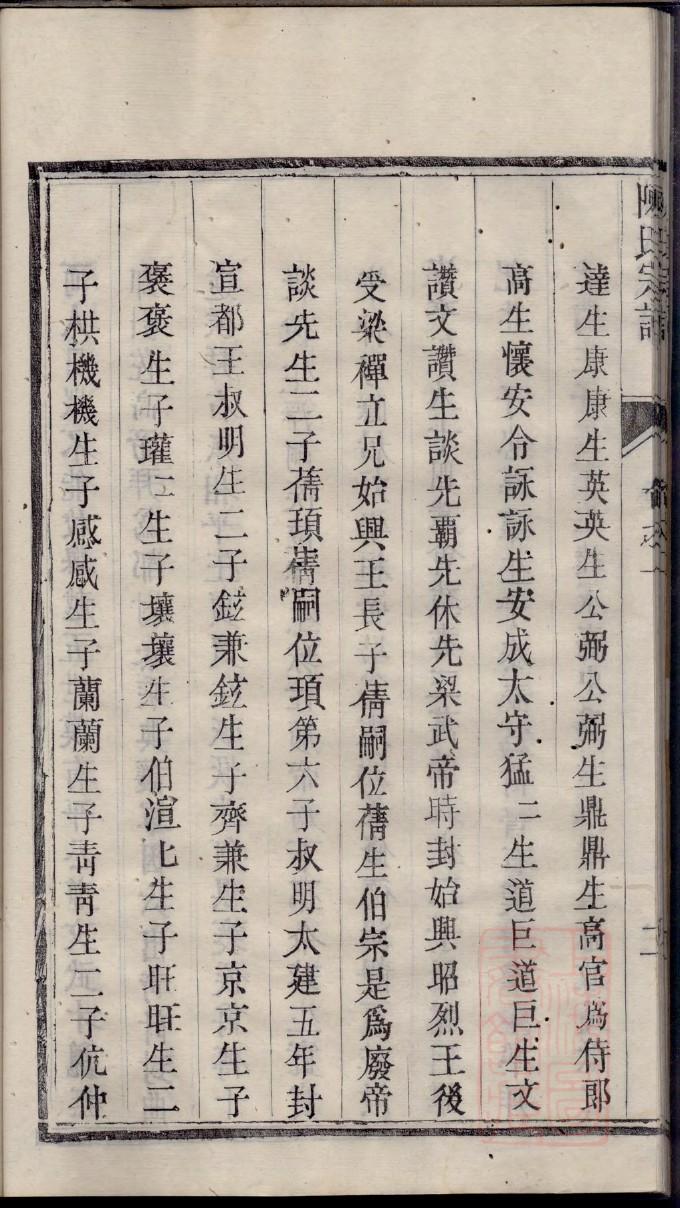 陳氏宗譜
卷之一
達生康康生英英生公弼公弼生鼎鼎生高官爲侍郎
高生懷安令詠詠生安成太守猛二生道巨道巨生文
讚文讚生談先霸先休先梁武帝時封始興昭烈王後
受梁禪立兄始興王長子蒨嗣位蒨生伯宗是爲廢帝
談先生二子蒨頊蒨嗣位頊第六子叔明太建五年封
宣都王叔明生二子鉉兼鉉生子齊兼生子京京生子
褒褒生子瓘二生子壤壤生子伯渲匕生子旺旺生二
子栱機機生子感感生子蘭蘭生子青青生二子伉仲